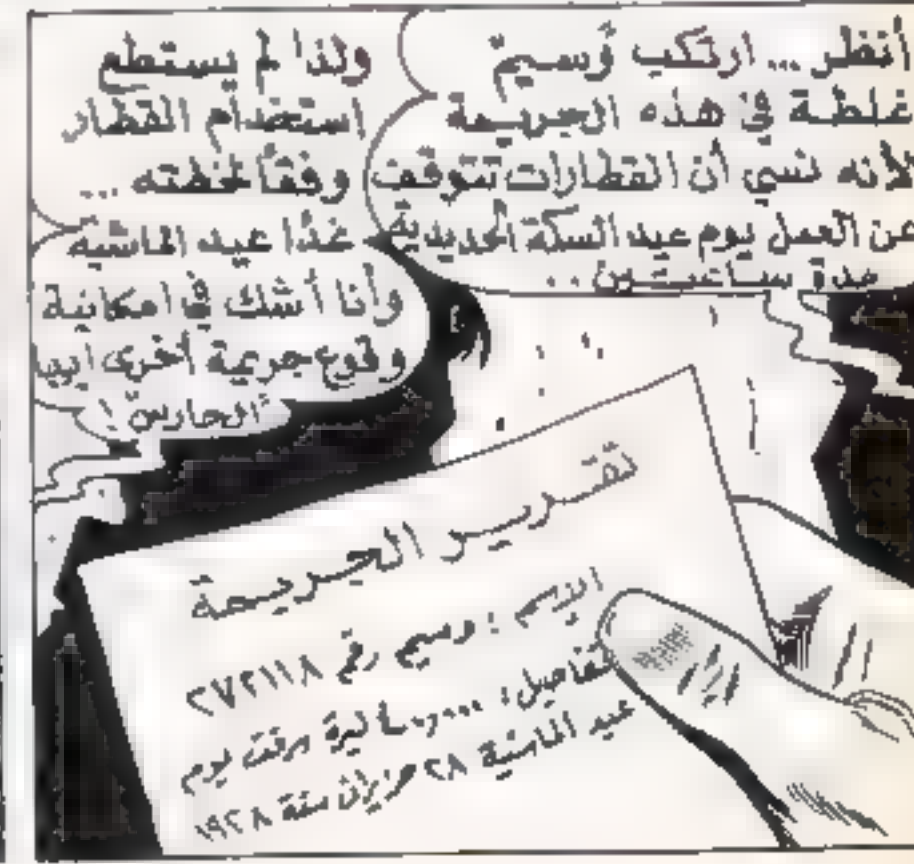 أنظر... ارتكب وَسيمٌ
غلطة في هذه الجريمة
لأنه نسي أن القطارات تتوقف
عن العمل يوم عيد السكة الحديدية
مدة ساعتين..
ولذا لم يستطع
استخدام القطار
وفقاً لخطته ...
غداً عيد الماشية
وأنا أشك في امكانية
وقوع جريمة أخرى ايها
"الحارس"!
تقرير الجريمة
الاسم : وسيم رقم ٢٧٢١١٨
تفاصيل: ليرة سرقت يوم
عيد الماشية ٢٨ حزيران سنة ١٩٢٨